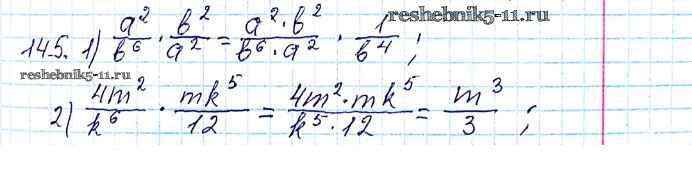 reshebnik5-11.ru
145. 1) a²/b⁶ · b²/a² = a²·b²/b⁶·a² · 1/b⁴ ;
reshebnik5-11.ru
2) 4m²/k⁶ · mk⁵/12 = 4m²·mk⁵/k⁵·12 = m³/3 ;